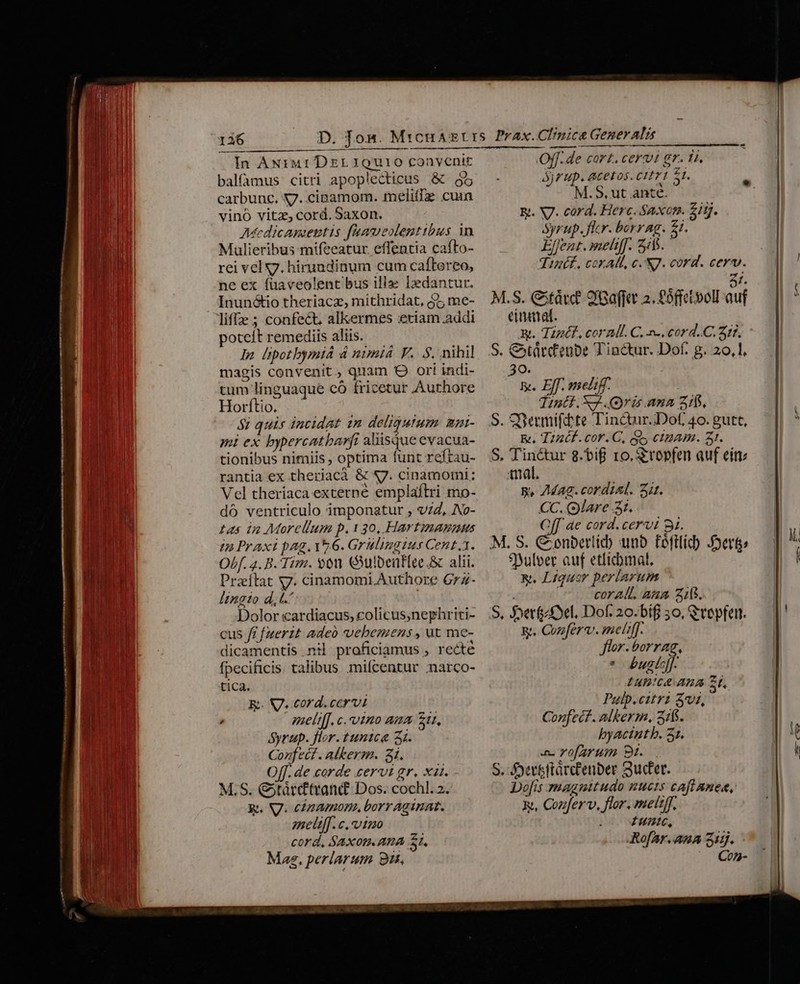 126 D. Joh. Michaelis Prax. Clinica Generalis
In Animi Deliquio convenit
balsamus citri apoplecticus &
carbunc. 🜄. cinamom. melissæ cum
vinô vitæ, cord. Saxon.
Medicamentis suaveolentibus in
Mulieribus misceatur essentia casto-
rei vel 🜄. hirundinum cum castoreo,
ne ex suaveolentibus illæ lædantur.
Inunctio theriacæ, mithridat. me-
lissæ ; confect. alkermes etiam addi
potest remediis aliis.
In lipothymiâ à nimiâ V. S. nihil
magis convenit, quam ori indi-
tum linguaque cô fricetur Authore
Horstio.
Si quis incidat in deliquium ani-
mi ex hypercatharsi aliisque evacua-
tionibus nimiis, optima sunt restau-
rantia ex theriacâ & 🜄. cinamomi:
Vel theriaca externè emplastri mo-
dô ventriculo imponatur, vid. No-
tas in Morellum p. 130. Hartmannus
in Praxi pag. 176. Grulingius Cent. 1.
Obs. 4. B. Tim. von Güldenklee. & alii.
Præstat 🜄. cinamomi Authore Gru-
lingio d, l.
Dolor cardiacus, colicus, nephriti-
cus si fuerit adeò vehemens, ut me-
dicamentis nil proficiamus, rectè
specificis talibus miscentur narco-
tica.
℞. 🜄. cord. cervi
meliss. c. vino ana ʒii.
Syrup. flor. tunicæ ʒi.
Confect. alkerm. ʒi.
Off. de corde cervi gr. xii.
M. S. Stärcktranck Dos. cochl. 2.
℞. 🜄. cinamom. borraginat.
meliss. c. vino
cord. Saxon. ana ʒi.
Mag. perlarum ℈ii.
Off. de cort. cervi gr. ii.
Syrup. acetos. citri ʒi.
M. S. ut antè.
℞. 🜄. cord. Herc. Saxon. ʒiij.
Syrup. flor. borrag. ʒi.
Essent. meliss. ʒiß.
Tinct. corall. c. 🜄. cord. cerv.
ʒi.
M. S. Stärck Wasser 2. Löffel voll auf
einmal.
℞. Tinct. corall. C. cord. C. ʒii.
S. Stärckende Tinctur. Dos. g. 20, l,
30.
℞. Ess. meliss.
Tinct. ris ana ʒiß.
S. Vermischte Tinctur. Dos. 40. gutt.
℞. Tinct. cor. C, cinam. ʒi.
S. Tinctur 8. biß 10. Tropfen auf ein-
mal.
℞. Mag. cordial. ʒii.
CC. Solare ʒi.
Off de cord. cervi ℈i.
M. S. Sonderlich und köstlich Hertz-
Pulver auf etlichmal.
℞. Liquor perlarum
corall. ana ʒiß.
S. Hertz-Oel. Dos. 20. biß 30. Tropfen.
℞. Conserv. meliss.
flor. borrag.
bugloss.
tunicæ ana ʒi,
Pulp. citri ʒvi,
Confect. alkerm. ʒiß.
hyacinth. ʒi.
rosarum ℈i.
S. Hertzstärckender Zucker.
Dosis magnitudo nucis castaneæ,
℞, Conserv. flor. meliss.
tunic.
Rosar. ana ʒiij.
Con-